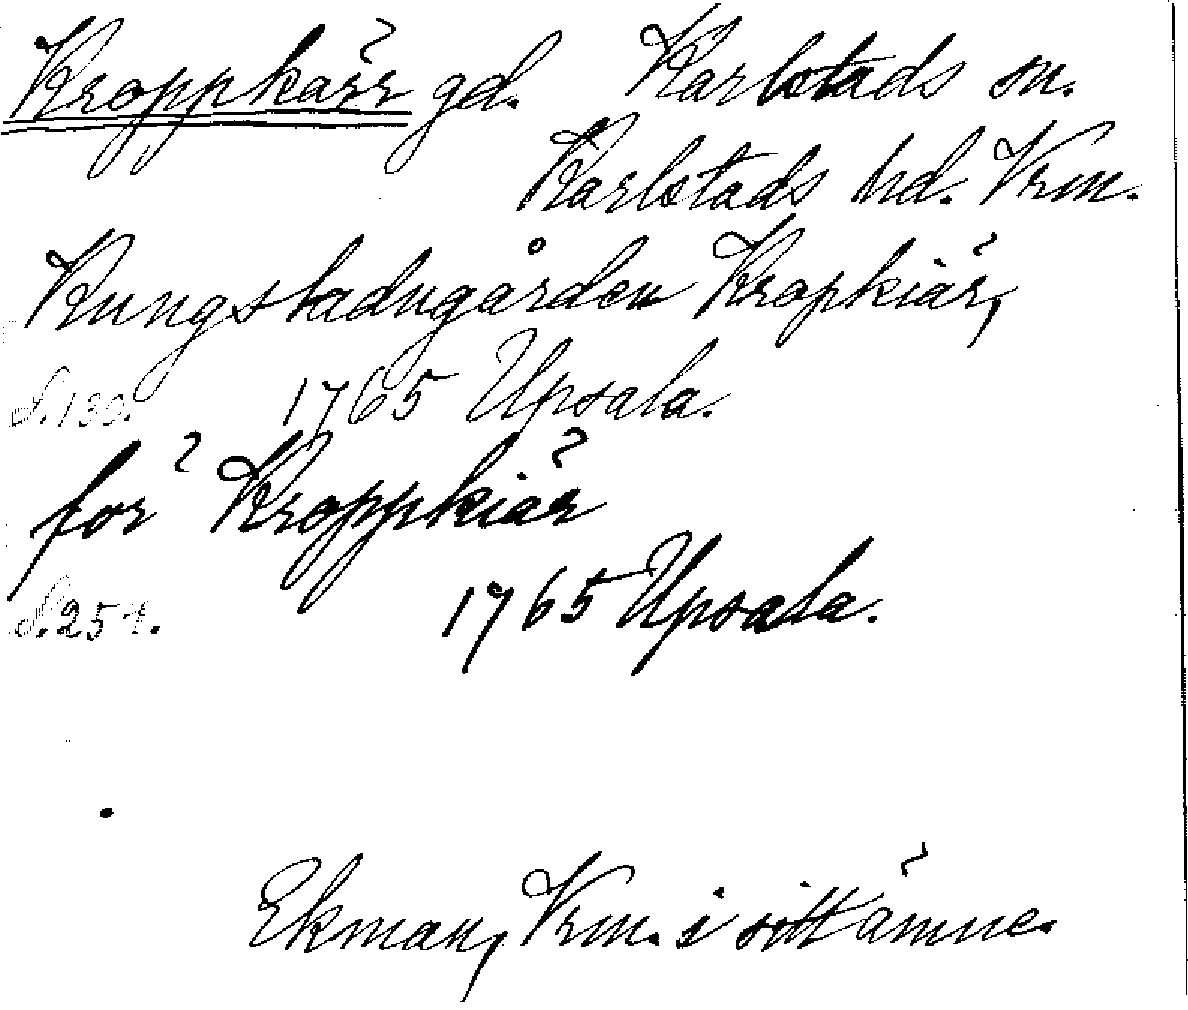 Kroppkärr gd. Karlstads sn.
Karlstads hd. Vrm.
Kungsladugården Kropkiär,
S. 130. 1765 Upsala.
för Kroppkiär
S. 257. 1765 Upsala.
Ekman, Vrm. i sitt ämne.